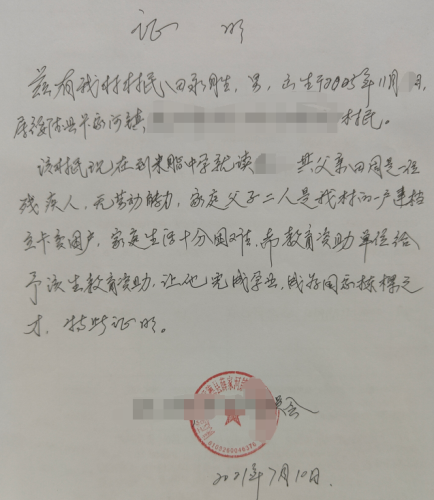 证明
兹有我村村民田永胜,男,出生于2005年11月
村民。
该村民现在到米脂中学就读 其父亲田周是一位
残疾人,无劳动能力,家庭父子二人是我村的一户建档
立卡贫困户,家庭生活十分困难,希教育资助单位给
予该生教育资助,让他完成学业,成为国家栋梁之
才,特此证明。
委会
2021年7月10日.